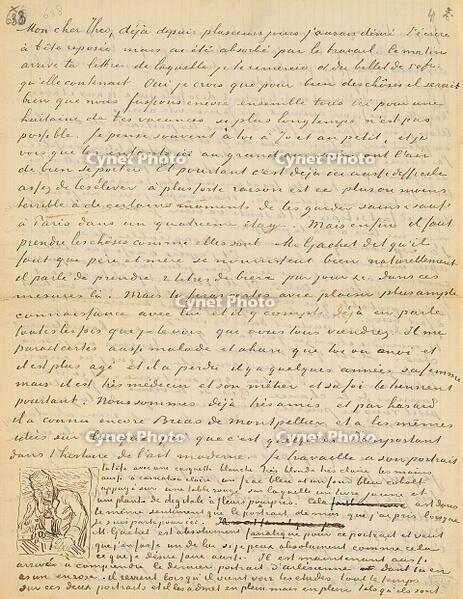 638
638
4 2.
Mon cher Theo, déjà depuis plusieurs jours j'aurais désiré t'écrire
à tête reposée mais ai été absorbé par le travail. Ce matin
arrive ta lettre de laquelle je te remercie et du billet de 50 fr.
qu'elle contenait. Oui je crois que pour bien des choses il serait
bien que nous fussions encore ensemble tous ici pour une
huitaine de tes vacances si plus longtemps n'est pas
possible. Je pense souvent à toi à Jo et au petit, et je
Cynet Photo Cynet Photo
vois que les enfants ici au grand air ont l'air
de bien se porter. Et pourtant c'est déjà ici aussi difficile
assez de les élever à plus forte raison est ce plus ou moins
terrible à de certains moments de les garder sains et saufs
à Paris dans un quatrième étage. Mais enfin il faut
prendre les choses comme elles sont. M. Gachet dit qu'il
faut que père et mère se nourrissent bien naturellement
il parle de prendre 2 litres de bière par jour &c. dans ces
mesures là. Mais tu feras certes avec plaisir plus ample
Cynet Photo
connaissance avec lui et il y compte déjà en parle
toutes les fois que je le vois que vous tous viendrez. Il me
parait certes aussi malade et ahuri que toi ou moi et
il est plus agé et il a perdu il y a quelques années sa femme
mais il est très médecin et son métier et sa foi le tiennent
pourtant. Nous sommes déjà très amis et par hasard
il a connu encore Brias de Montpellier et a les mêmes
idées sur lui que j'ai que c'est quelqu'un d'important
Cynet Photo Cynet Photo
dans l'histoire de l'art moderne. Je travaille à son portrait
la tête avec une casquette blanche très blonde très claire les mains
aussi à carnation claire un frac bleu et un fond bleu cobalt
appuyé sur une table rouge sur laquelle un livre jaune et
une plante de digitale à fleurs pourpres. Cela est dans
le même sentiment que le portrait de moi que j'ai pris lorsque
je suis parti pour ici.
M. Gachet est absolument fanatique pour ce portrait et veut
que j'en fasse un de lui si je peux absolument comme cela
ce que je désire faire aussi. Il est maintenant aussi
arrivé à comprendre le dernier portrait d'arlésienne et dont tu en
as un en rose. il revient lorsqu'il vient voir les etudes tout le temps
sur ces deux portraits et il les admet en plein mais en plein tels qu'ils sont.